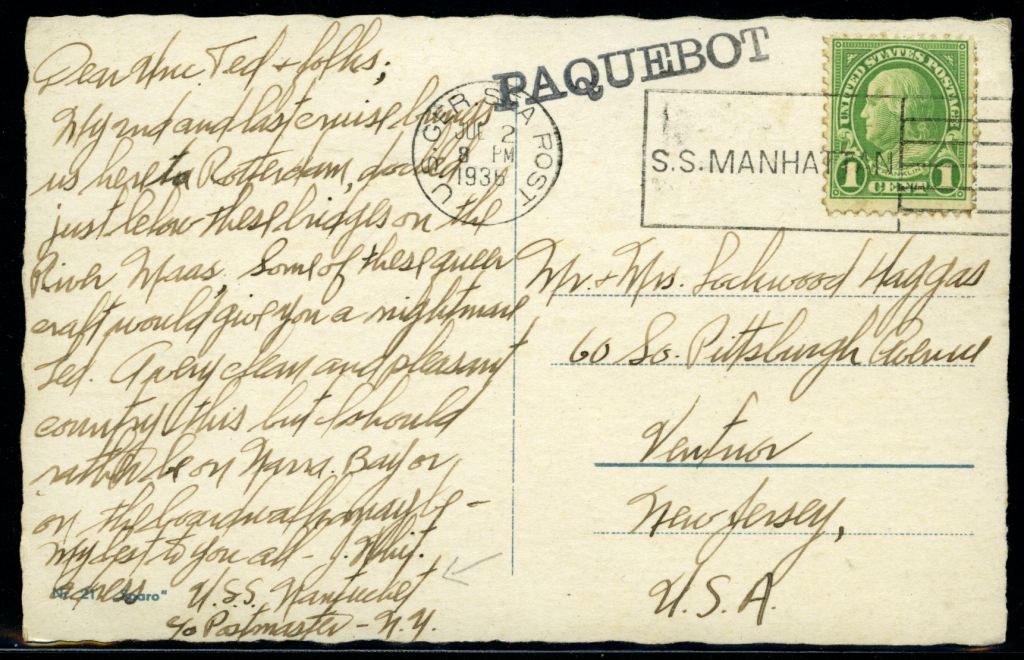 Dear Unc. Ted & folks,
My 2nd and last cruise brings
us here to Rotterdam, docked
just below these bridges on the
River Maas. Some of these queer
craft would give you a nightmare
Ted. A very clean and pleasant
country this but I should
rather be on Narra. Bay or,
on the boardwalk maybe -
my best to you all - J. Whit.
adress U.S.S. Nantucket
c/o Postmaster - N.Y.
Nr. 21 "Sparo"
PAQUEBOT
U.S. GER. SEA POST
2
8 PM
1936
S.S. MANHATTAN
UNITED STATES POSTAGE
FRANKLIN
1 CENT 1
Mr. & Mrs. Lockwood Haggas
60 So. Pittsburgh Avenue
Ventnor
New Jersey,
U.S.A.